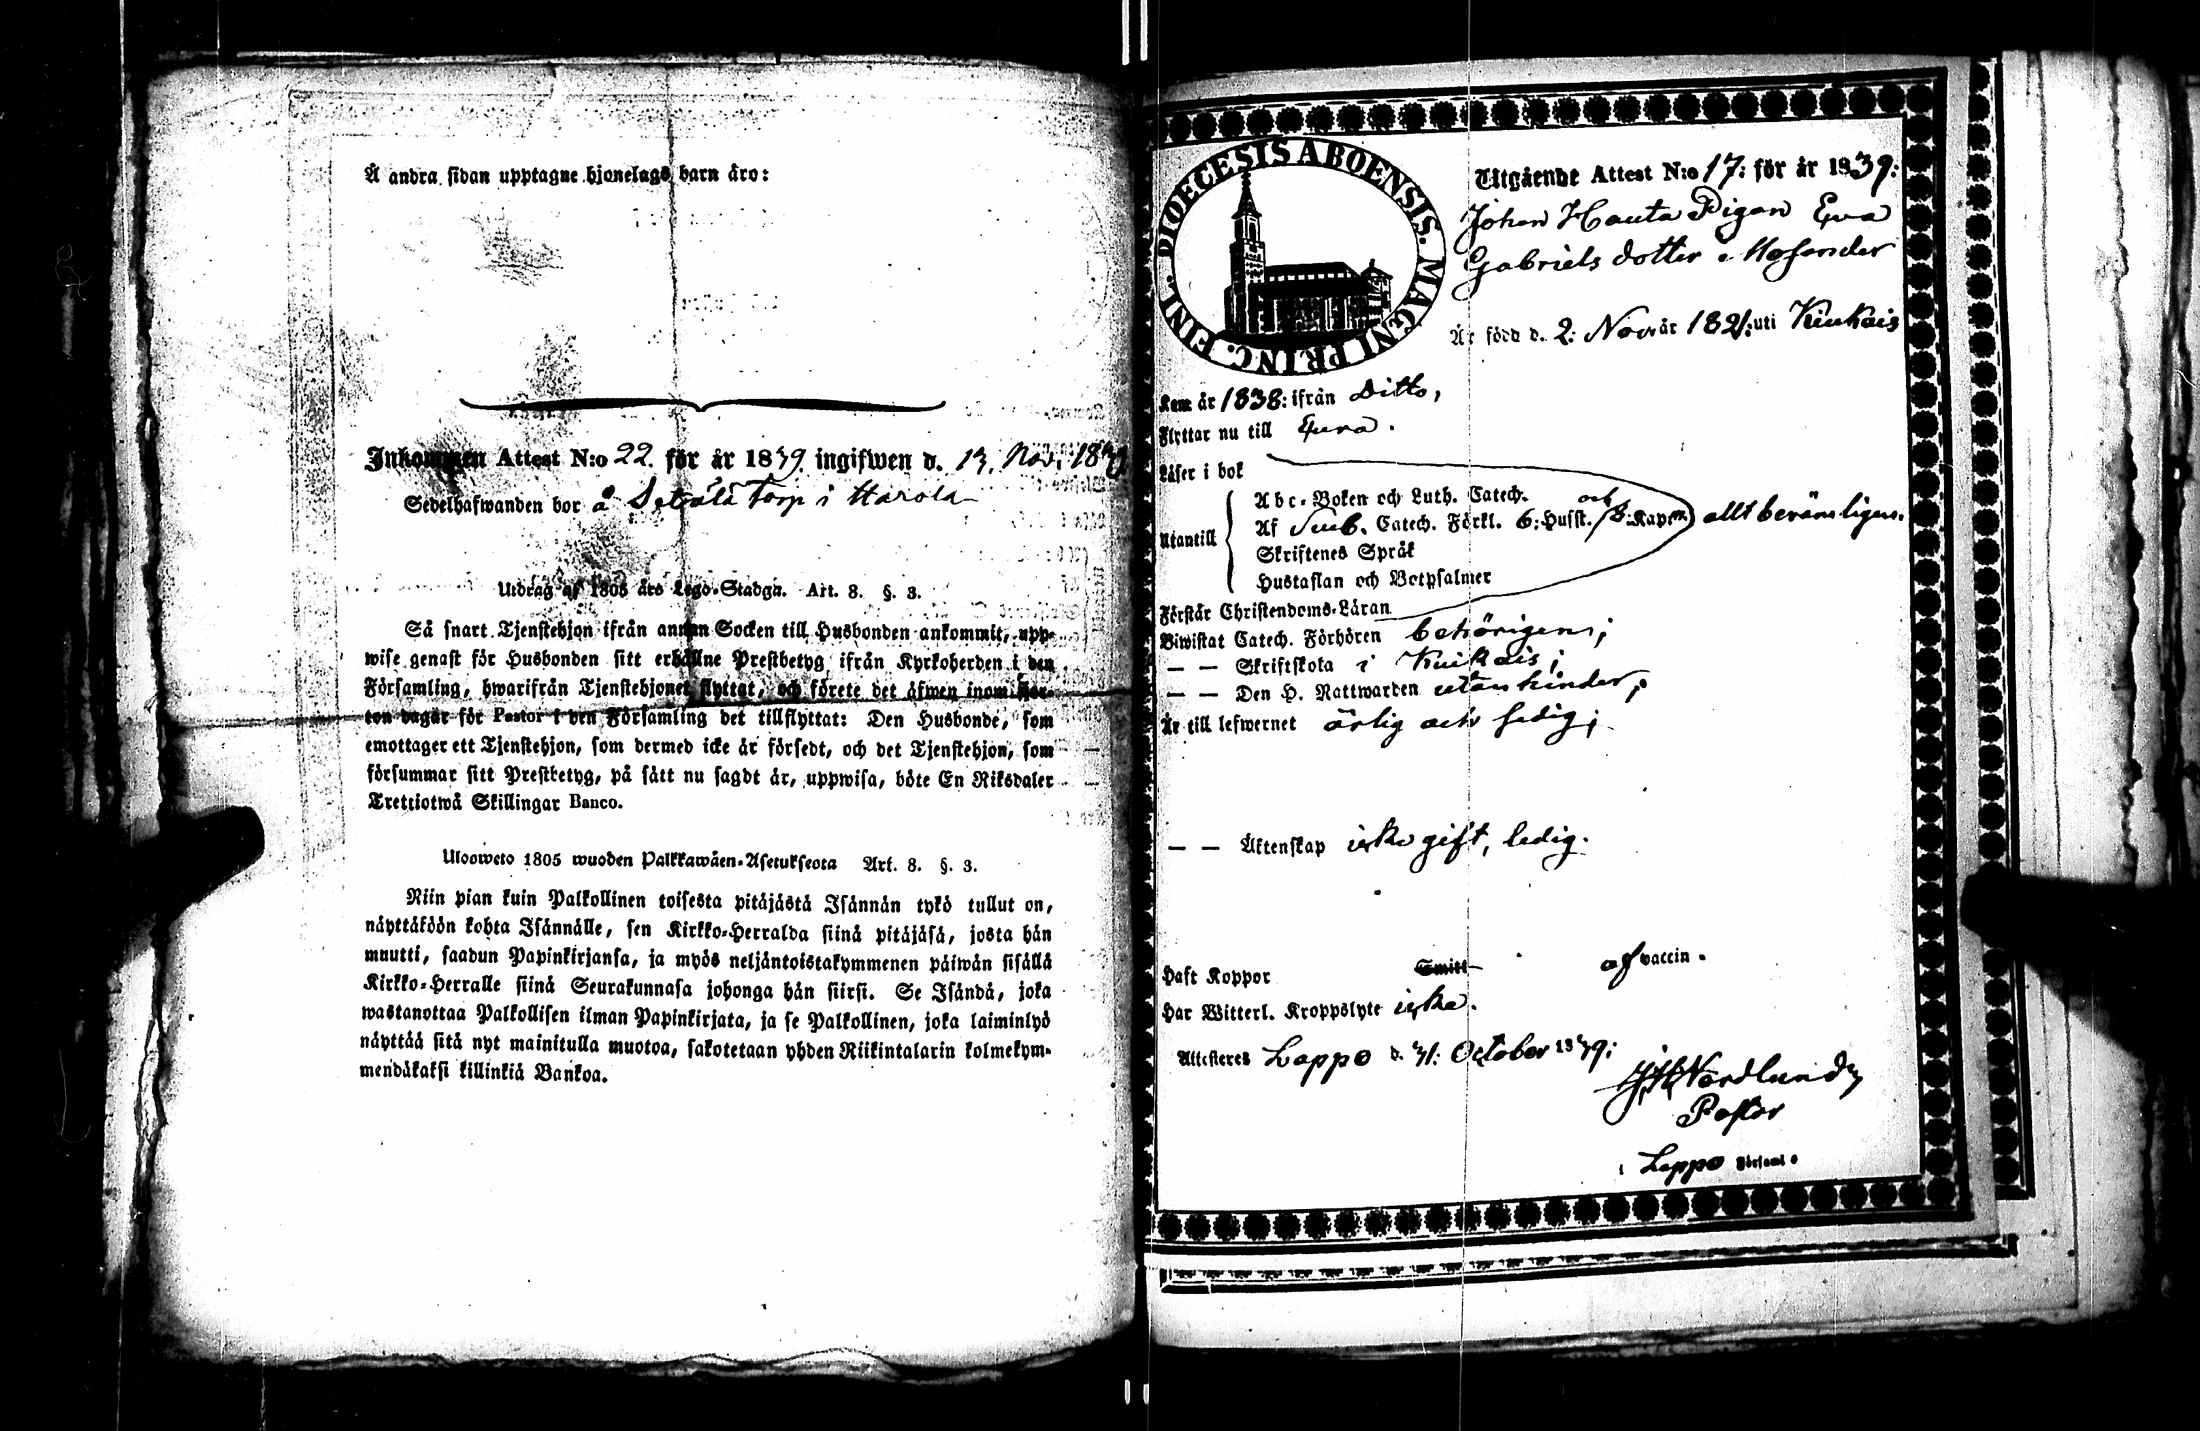 Å andra sidan upptagne hjonelags barn äro:
Inkommen Attest N:o 22. för år 1839. ingifwen d. 13. Nov. 1839
Sedelhafwanden bor å Setälä Torp i Harola
Utdrag af 1805 års Lego-Stadga. Art. 8. §. 3.
Så snart Tjenstehjon ifrån annan Socken till Husbonden ankommit, upp-
wise genast för Husbonden sitt erhållne Prestbetyg ifrån Kyrkoherden i den
Församling, hwarifrån Tjenstehjonet flyttat, och förete det äfwen inom fjor-
ton dagar för Pastor i den Församling det tillflyttat: Den Husbonde, som
emottager ett Tjenstehjon, som dermed icke är försedt, och det Tjenstehjon, som
försummar sitt Prestbetyg, på sätt nu sagdt är, uppwisa, böte En Riksdaler
Trettiotwå Skillingar Banco.
Uloosweto 1805 wuoden Palkkawäen-Asetuksesta Art. 8. §. 3.
Niin pian kuin Palkollinen toisesta pitäjästä Isännän tykö tullut on,
näyttäköön kohta Isännälle, sen Kirkko-Herralda siinä pitäjäsä, josta hän
muutti, saadun Papinkirjansa, ja myös neljäntoistakymmenen päiwän sisällä
Kirkko-Herralle siinä Seurakunnasa johonga hän siirsi. Se Isändä, joka
wastanottaa Palkollisen ilman Papinkirjata, ja se Palkollinen, joka laiminlyö
näyttää sitä nyt mainitulla muotoa, sakotetaan yhden Riikintalarin kolmekym-
mendäkaksi killinkiä Bankoa.
DIOECESIS ABOENSIS. MAGNI PRINC. FINL.
Utgående Attest N:o 17: för år 1839:
Johan Hauta Pigan Eva
Gabriels dotter Mosander
Är född d. 2: Nov. år 1821: uti Kiukais
Kom år 1838: ifrån Ditto,
Flyttar nu till Eura.
Läser i bok
Utantill
Abc-Boken och Luth. Catech.
Af Sveb. Catech. Förkl. 6: Husst. och 8: Kap. allt berömligen.
Skriftenes Språk
Hustaflan och Botpsalmer
Förstår Christendoms-Läran
Biwistat Catech. Förhören behörigen;
— — Skriftskola i Kiukais;
— — Den H. Nattwarden utan hinder;
Är till lefwernet ärlig och sedig;
— — Äktenskap icke gift, ledig.
Haft Koppor Smitt af vaccin.
Har Witterl. Kroppslyte icke.
Attesteres Lappo d. 31: October 1839;
Nordlund
Pastor
i Lappo Församl.